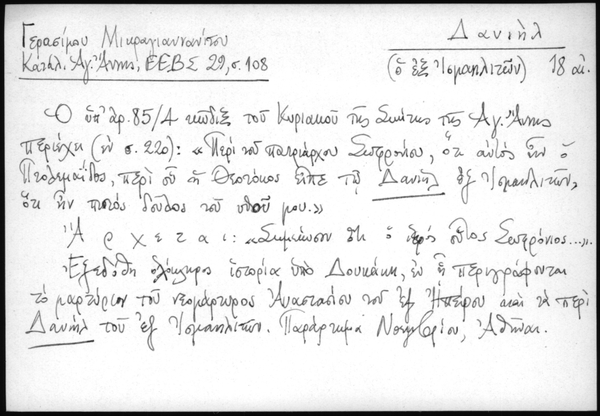 Γερασίμου Μικραγιαννανίτου
Κατάλ. Ἁγ. Ἄννης, ΕΕΒΣ 29, σ. 108
Δανιὴλ
(ὁ ἐξ Ἰσμαηλιτῶν) 18 αἰ.
Ὁ ὑπ' ἀρ. 85/4 κῶδιξ τοῦ Κυριακοῦ τῆς Σκήτης τῆς Ἁγ. Ἄννης
περιέχει (ἐν σ. 220): «Περὶ τοῦ πατριάρχου Σωφρονίου, ὅτι αὐτὸς ἦν ὁ
Πτολεμαΐδος, περὶ οὗ ἡ Θεοτόκος εἶπε τῷ Δανιὴλ ἐξ Ἰσμαηλιτῶν,
ὅτι ἦν πιστὸς δοῦλος τοῦ υἱοῦ μου.»
Ἄρχεται: «Σημείωσον ὅτι ὁ ἱερὸς οὗτος Σωφρόνιος...».
Ἐξεδόθη ὁλόκληρος ἱστορία ὑπὸ Δουκάκη, ἐν ᾗ περιγράφονται
τὸ μαρτύριον τοῦ νεομάρτυρος Ἀναστασίου τοῦ ἐξ Ἠπείρου καὶ τὰ περὶ
Δανιὴλ τοῦ ἐξ Ἰσμαηλιτῶν. Παράρτημα Νοεμβρίου, Ἀθῆναι.